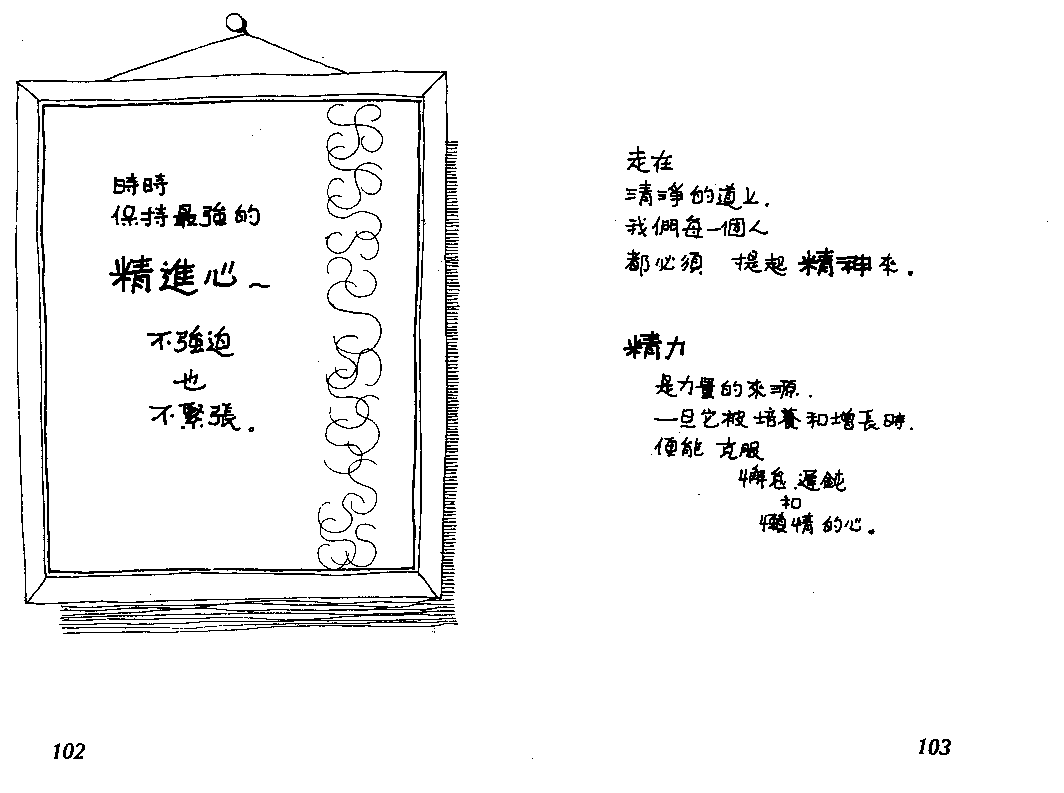 時時
保持最強的
精進心~
不強迫
也
不緊張。
102
走在
清淨的道上.
我們每一個人
都必須 提起精神來。
精力
是力量的來源.
一旦它被培養和增長時.
便能 克服
懈怠.遲鈍
和
懶惰的心。
103